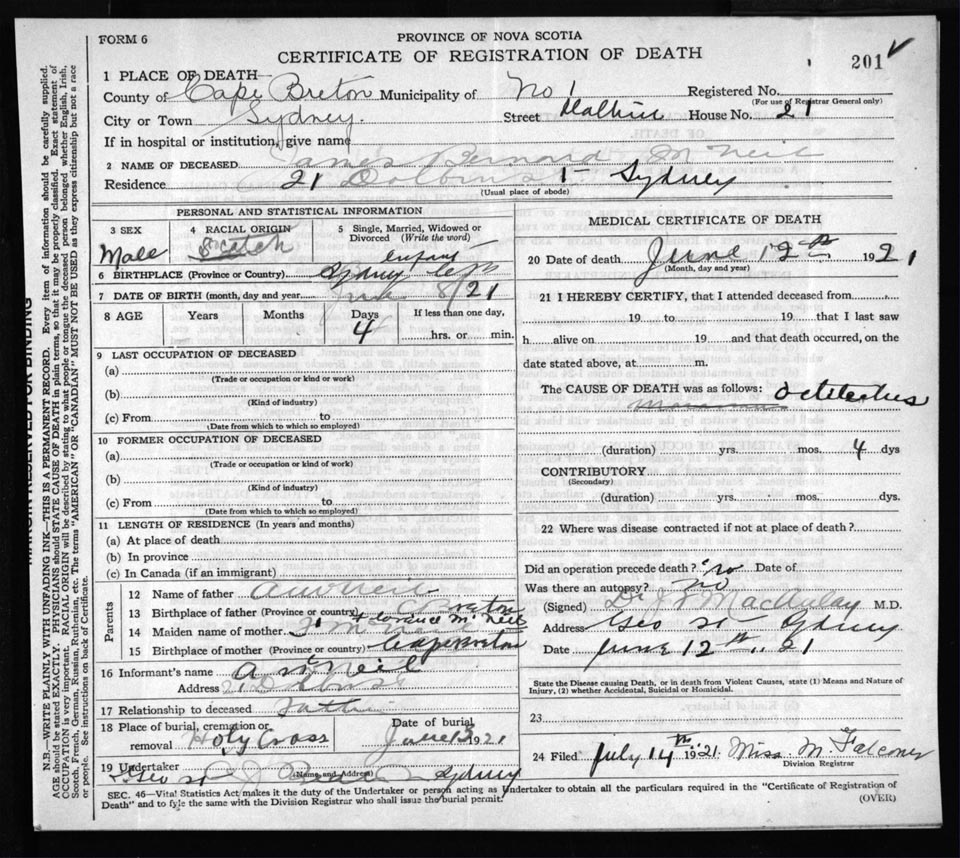 FORM 6
PROVINCE OF NOVA SCOTIA
CERTIFICATE OF REGISTRATION OF DEATH
201
1 PLACE OF DEATH—
County of Cape Breton Municipality of No 1 Registered No.
(For use of Registrar General only)
City or Town Sydney. Street House No. 21
If in hospital or institution, give name
2 NAME OF DECEASED James Bernard McNeil
Residence 21 St Sydney
(Usual place of abode)
PERSONAL AND STATISTICAL INFORMATION
3 SEX 4 RACIAL ORIGIN 5 Single, Married, Widowed or Divorced (Write the word)
Male Scotch infant
6 BIRTHPLACE (Province or Country) Sydney
7 DATE OF BIRTH (month, day and year June 8/21
8 AGE Years Months Days If less than one day,
4 hrs. or min.
9 LAST OCCUPATION OF DECEASED
(a)
(Trade or occupation or kind of work)
(b)
(Kind of industry)
(c) From to
(Date from which to which so employed)
10 FORMER OCCUPATION OF DECEASED
(a)
(Trade or occupation or kind of work)
(b)
(Kind of industry)
(c) From to
(Date from which to which so employed)
11 LENGTH OF RESIDENCE (In years and months)
(a) At place of death
(b) In province
(c) In Canada (if an immigrant)
Parents
12 Name of father A McNeil
13 Birthplace of father (Province or country) C Breton
14 Maiden name of mother Florence McNeil
15 Birthplace of mother (Province or country) Cape Breton
16 Informant's name A McNeil
Address 21
17 Relationship to deceased Father
18 Place of burial, cremation or removal Holy Cross Date of burial June 13 1921
19 Undertaker
(Name and Address)
Geo St Sydney
MEDICAL CERTIFICATE OF DEATH
20 Date of death June 12th 1921
(Month, day and year)
21 I HEREBY CERTIFY, that I attended deceased from
19 to 19 that I last saw
h alive on 19 and that death occurred, on the
date stated above, at m.
The CAUSE OF DEATH was as follows:
(duration) yrs. mos. 4 dys
CONTRIBUTORY
(Secondary)
(duration) yrs. mos. dys.
22 Where was disease contracted if not at place of death?
Did an operation precede death? no Date of
Was there an autopsy? no
(Signed) Dr J MacAulay M.D.
Address Geo St Sydney
Date June 12th 21
State the Disease causing Death, or in death from Violent Causes, state (1) Means and Nature of
Injury, (2) whether Accidental, Suicidal or Homicidal.
23
24 Filed July 14th 1921 Miss M. Falconer
Division Registrar
SEC. 46—Vital Statistics Act makes it the duty of the Undertaker or person acting as Undertaker to obtain all the particulars required in the "Certificate of Registration of
Death" and to file the same with the Division Registrar who shall issue the burial permit.
(OVER)
MARGIN RESERVED FOR BINDING
N.B.—WRITE PLAINLY WITH UNFADING INK—THIS IS A PERMANENT RECORD. Every item of Information should be carefully supplied.
AGE should be stated EXACTLY. PHYSICIANS should STATE CAUSE OF DEATH in plain terms, so that it may be properly classified. Exact statement of
OCCUPATION is very important. RACIAL ORIGIN will be described by stating to what people or tongue the deceased person belonged whether English, Irish,
Scotch, French, German, Russian, Ruthenian, etc. The terms "AMERICAN" or "CANADIAN" MUST NOT BE USED as they express citizenship but not a race
or people. See instructions on back of Certificate.